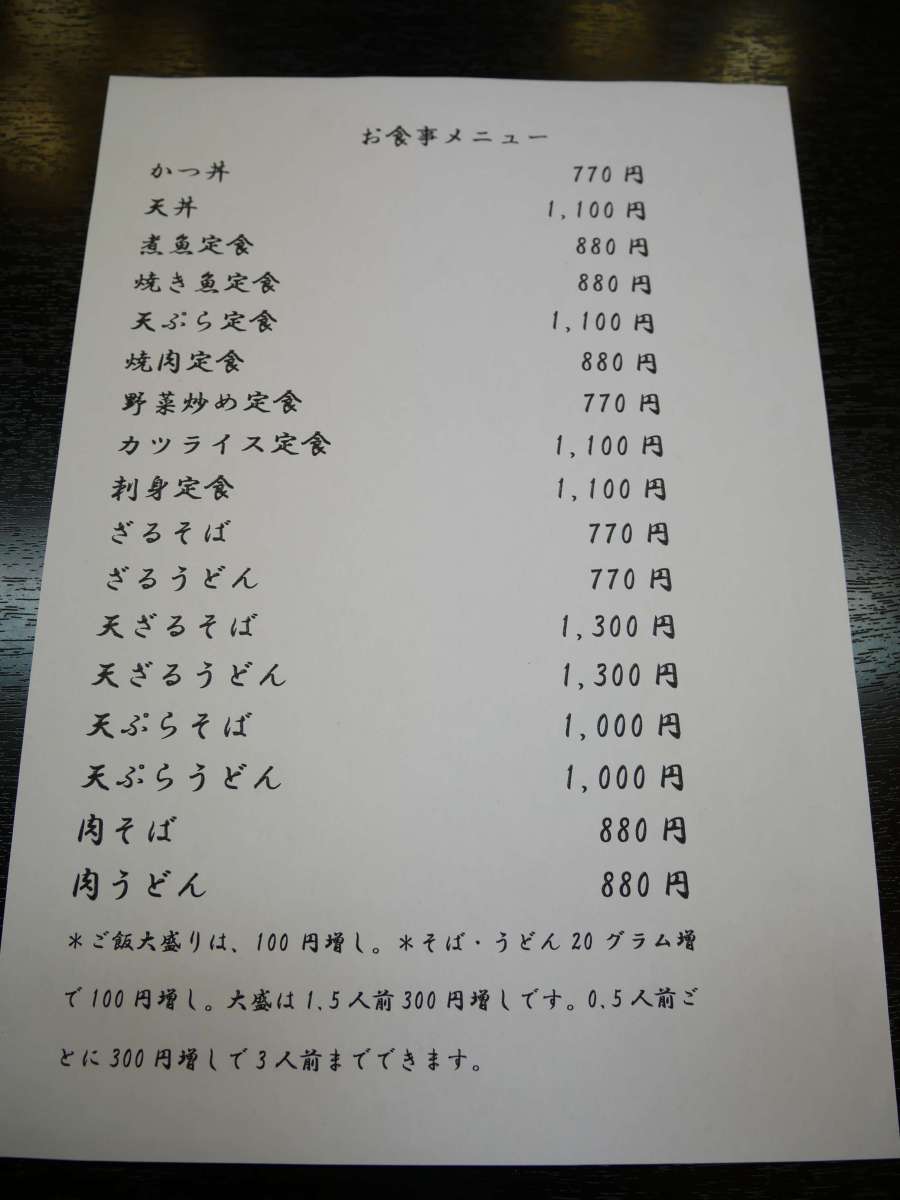 お食事メニュー
かつ丼 770円
天丼 1,100円
煮魚定食 880円
焼き魚定食 880円
天ぷら定食 1,100円
焼肉定食 880円
野菜炒め定食 770円
カツライス定食 1,100円
刺身定食 1,100円
ざるそば 770円
ざるうどん 770円
天ざるそば 1,300円
天ざるうどん 1,300円
天ぷらそば 1,000円
天ぷらうどん 1,000円
肉そば 880円
肉うどん 880円
＊ご飯大盛りは、100円増し。＊そば・うどん20グラム増
で100円増し。大盛は1.5人前300円増しです。0.5人前ご
とに300円増しで3人前までできます。